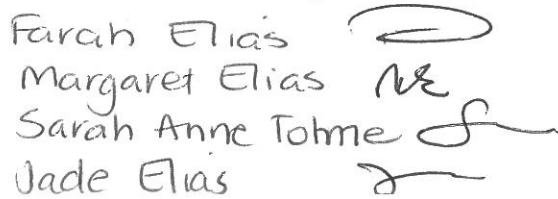 Farah Elias
Margaret Elias ME
Sarah Anne Tohme
Jade Elias